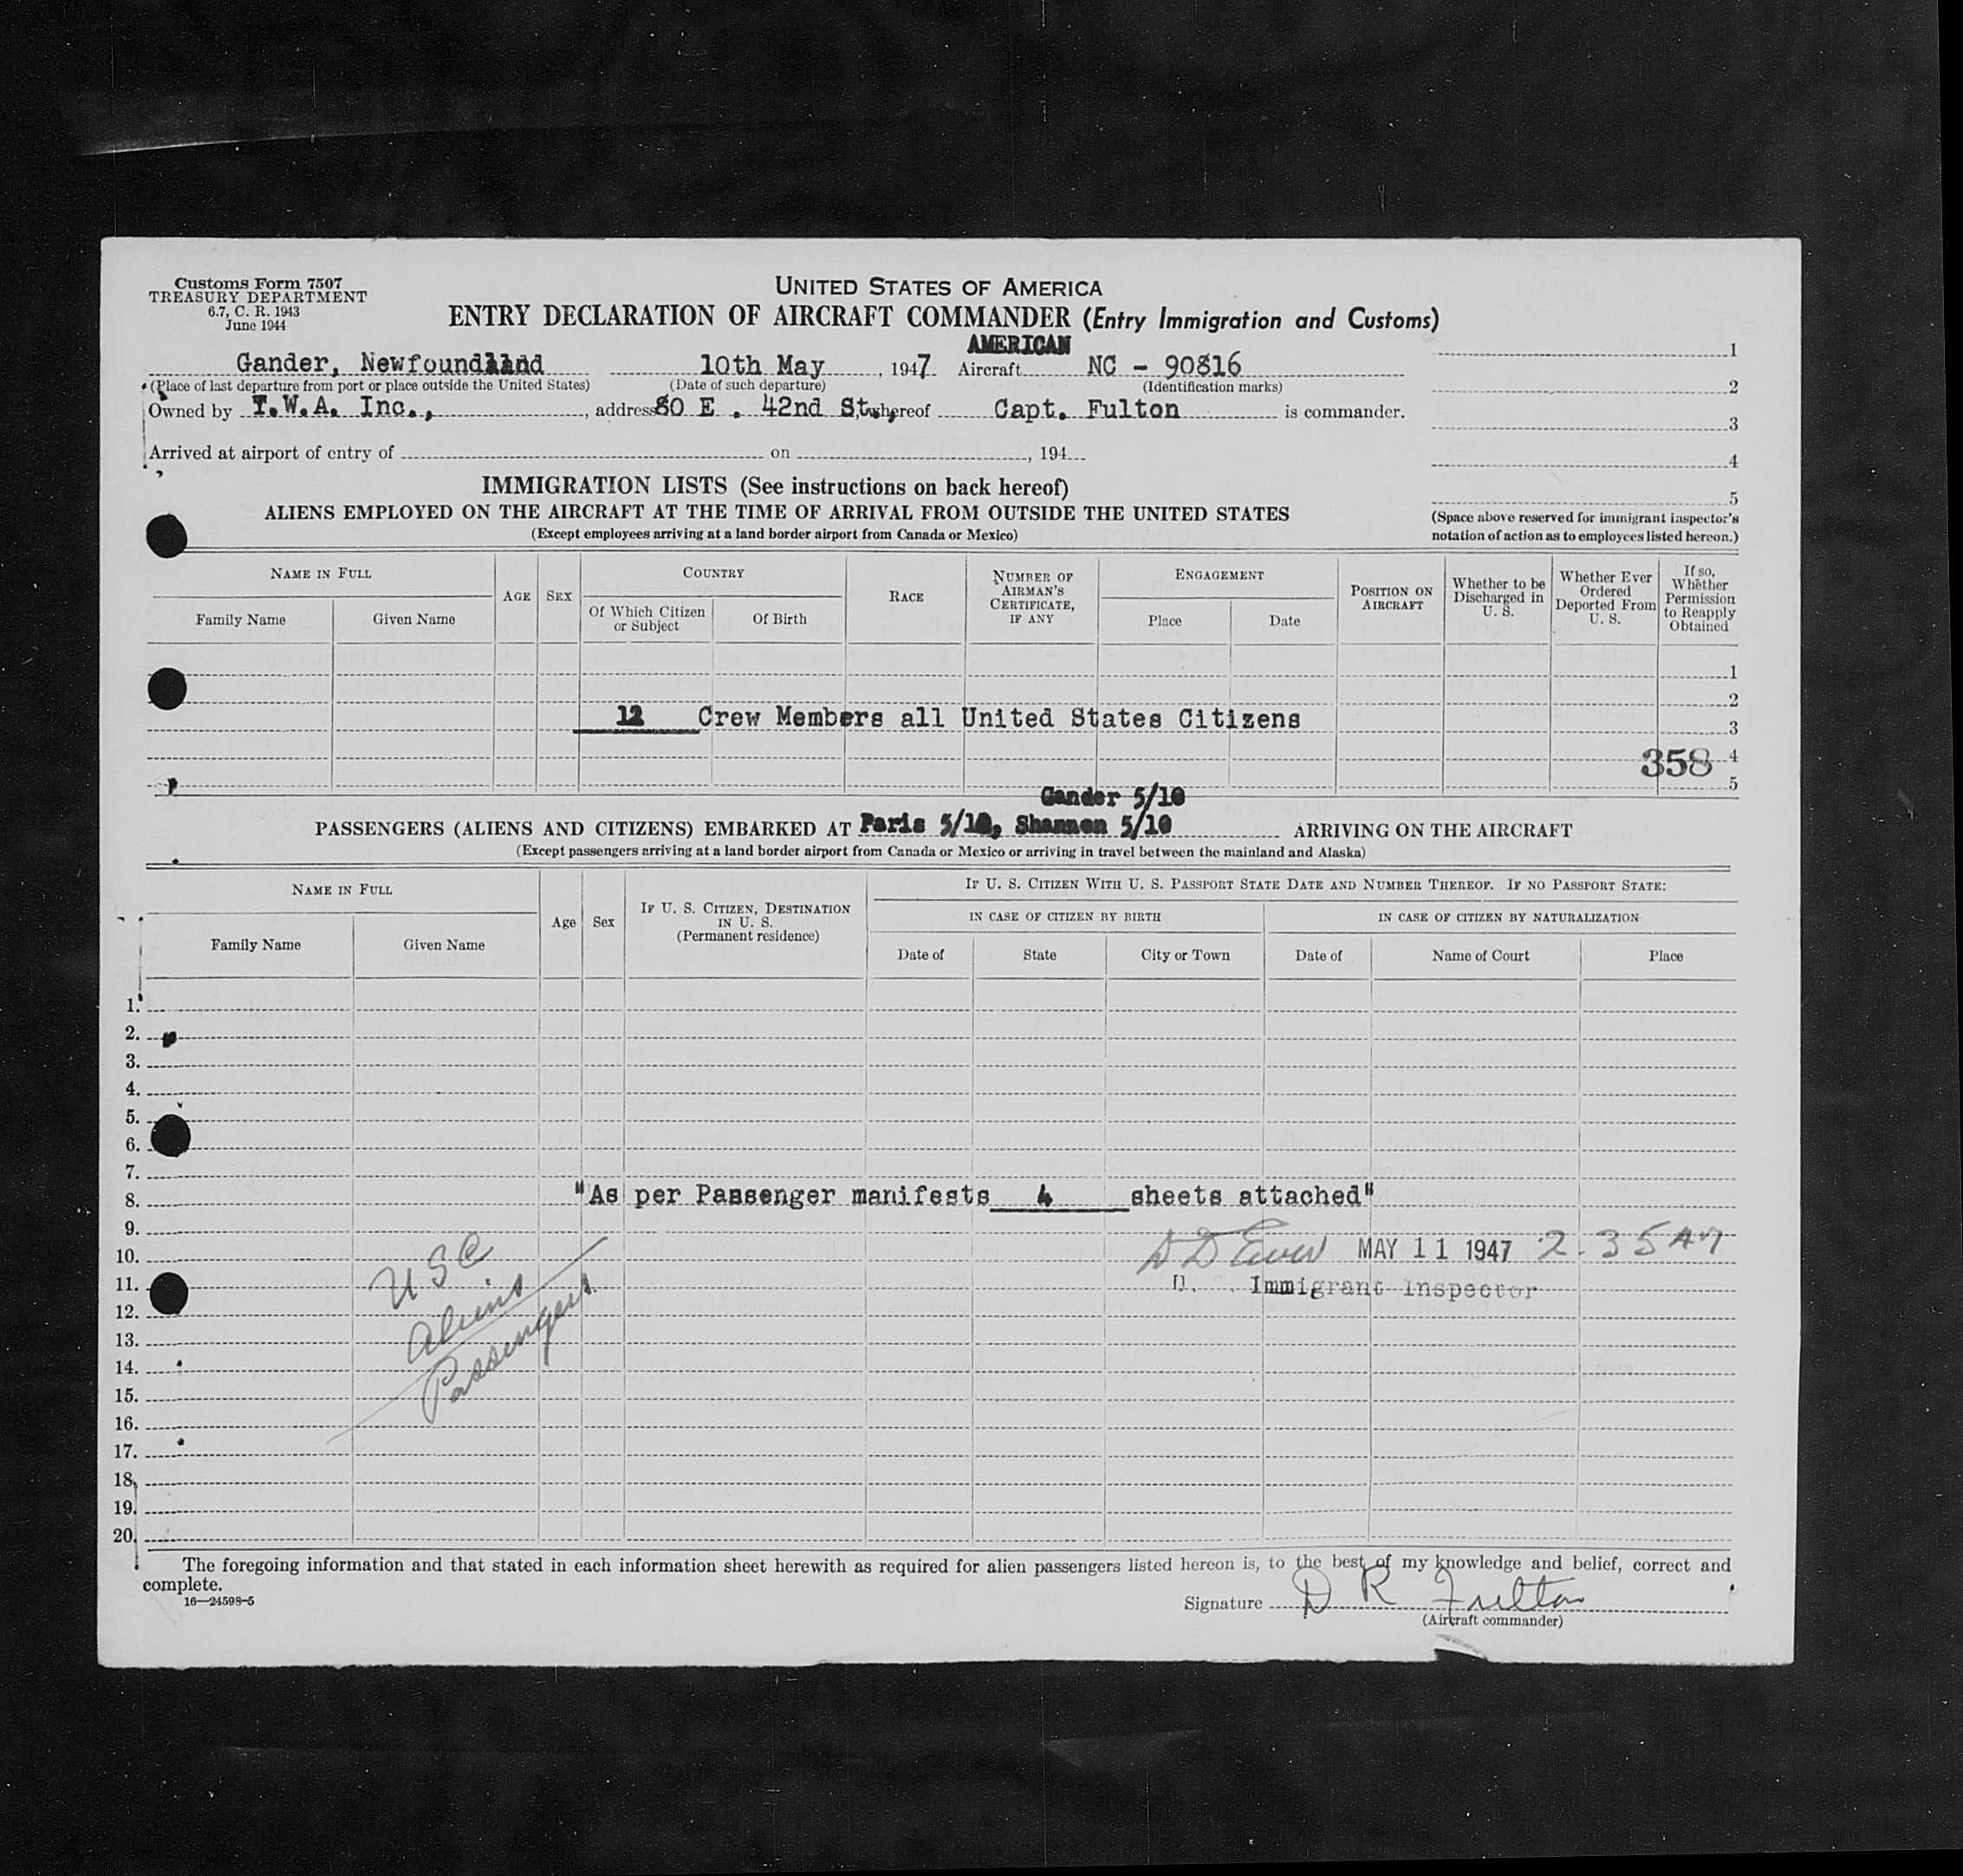 Customs Form 7507
TREASURY DEPARTMENT
6.7, C. R. 1943
June 1944
UNITED STATES OF AMERICA
ENTRY DECLARATION OF AIRCRAFT COMMANDER (Entry Immigration and Customs)
AMERICAN
Gander, Newfoundland 10th May, 1947 Aircraft NC - 90816
(Place of last departure from port or place outside the United States) (Date of such departure) (Identification marks)
Owned by T.W.A. Inc., , address 80 E. 42nd St., whereof Capt. Fulton is commander.
Arrived at airport of entry of on , 194
1
2
3
4
5
(Space above reserved for immigrant inspector's
notation of action as to employees listed hereon.)
IMMIGRATION LISTS (See instructions on back hereof)
ALIENS EMPLOYED ON THE AIRCRAFT AT THE TIME OF ARRIVAL FROM OUTSIDE THE UNITED STATES
(Except employees arriving at a land border airport from Canada or Mexico)
NAME IN FULL
Family Name Given Name
AGE SEX
COUNTRY
Of Which Citizen or Subject Of Birth
RACE
NUMBER OF AIRMAN'S CERTIFICATE, IF ANY
ENGAGEMENT
Place Date
POSITION ON AIRCRAFT
Whether to be Discharged in U. S.
Whether Ever Ordered Deported From U. S.
If so, Whether Permission to Reapply Obtained
1
2
12 Crew Members all United States Citizens
3
358 4
5
Gander 5/10
PASSENGERS (ALIENS AND CITIZENS) EMBARKED AT Paris 5/10, Shannon 5/10 ARRIVING ON THE AIRCRAFT
(Except passengers arriving at a land border airport from Canada or Mexico or arriving in travel between the mainland and Alaska)
NAME IN FULL
Family Name Given Name
Age Sex
IF U. S. CITIZEN, DESTINATION IN U. S.
(Permanent residence)
IF U. S. CITIZEN WITH U. S. PASSPORT STATE DATE AND NUMBER THEREOF. IF NO PASSPORT STATE:
IN CASE OF CITIZEN BY BIRTH IN CASE OF CITIZEN BY NATURALIZATION
Date of State City or Town Date of Name of Court Place
1.
2.
3.
4.
5.
6.
7.
8. "As per Passenger manifests 4 sheets attached"
9.
10. MAY 11 1947 2-35 AM
11. Immigrant Inspector
USC
Aliens
Passengers
12.
13.
14.
15.
16.
17.
18.
19.
20.
The foregoing information and that stated in each information sheet herewith as required for alien passengers listed hereon is, to the best of my knowledge and belief, correct and
complete.
16—24598-5
Signature D R Fulton
(Aircraft commander)